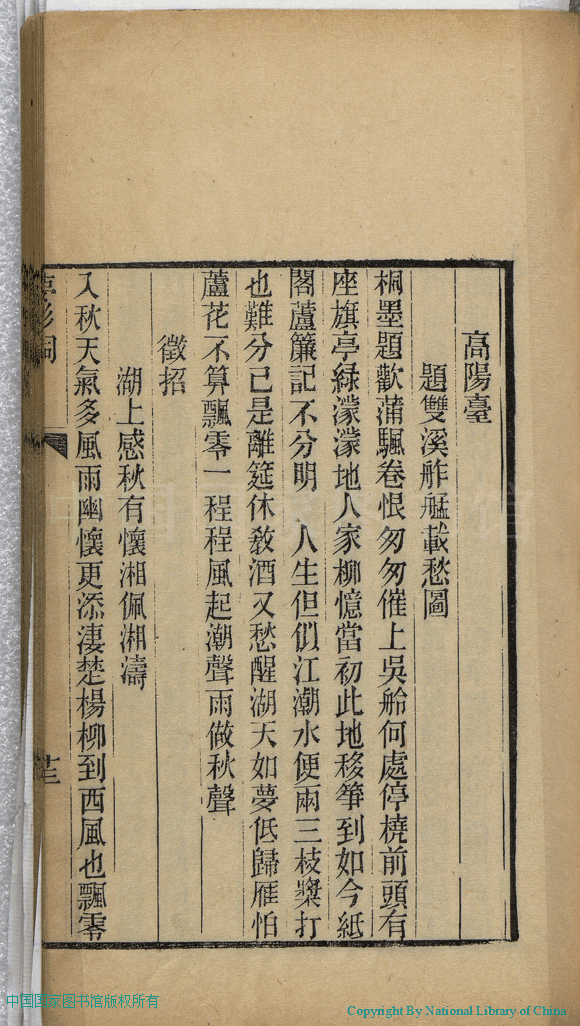 高陽臺
題雙溪舴艋載愁圖
桐墨題歡蒲颿卷恨匆匆催上吳舲何處停橈前頭有
座旗亭綠濛濛地人家柳憶當初此地移箏到如今紙
閣蘆簾記不分明　人生但似江潮水便兩三枝槳打
也難分已是離筵休教酒又愁醒湖天如夢低歸雁怕
蘆花不算飄零一程程風起潮聲雨做秋聲
徵招
湖上感秋有懷湘佩湘濤
入秋天氣多風雨幽懷更添淒楚楊柳到西風也飄零
影詞
中国国家图书馆版权所有
Copyright By National Library of China